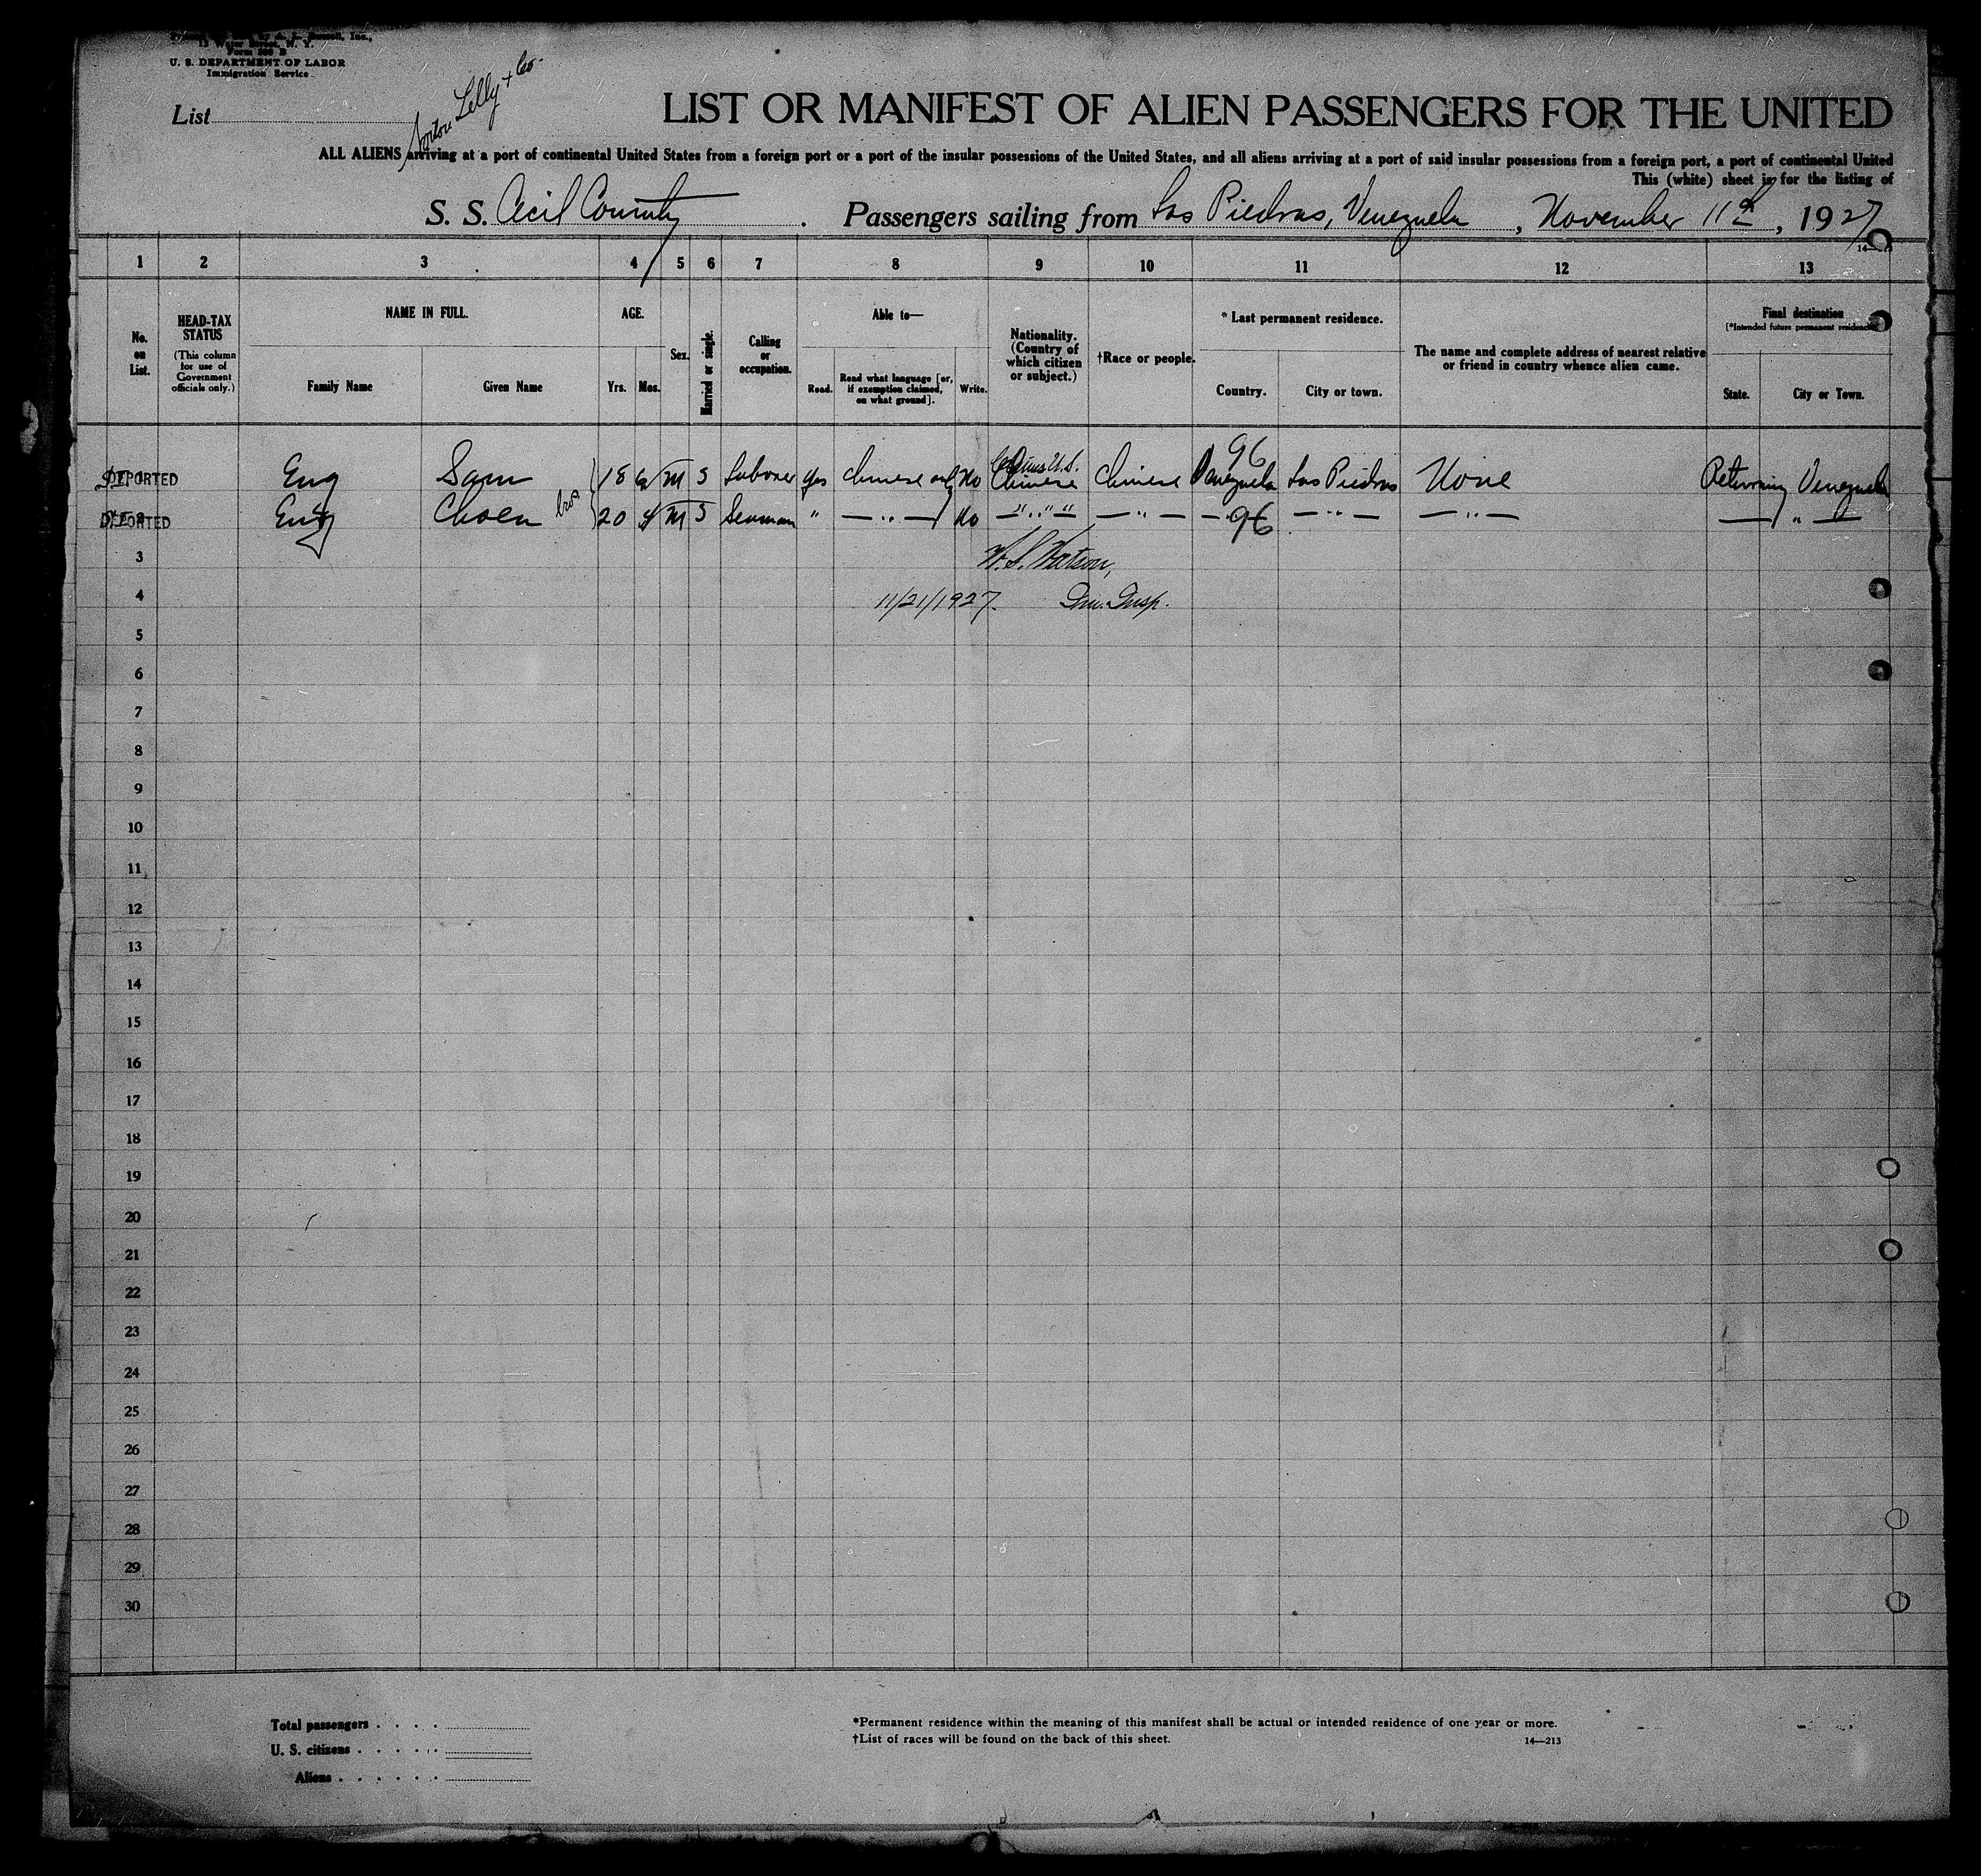 13 Water Street, N. Y.
Form 500 B
U. S. DEPARTMENT OF LABOR
Immigration Service
Norton Lilly + Co.
List
LIST OR MANIFEST OF ALIEN PASSENGERS FOR THE UNITED
ALL ALIENS arriving at a port of continental United States from a foreign port or a port of the insular possessions of the United States, and all aliens arriving at a port of said insular possessions from a foreign port, a port of continental United
This (white) sheet is for the listing of
S. S. Cecil County. Passengers sailing from Las Piedras, Venezuela, November 11th, 1927
1 2 3 4 5 6 7 8 9 10 11 12 13
No. on List.
HEAD-TAX STATUS
(This column for use of Government officials only.)
NAME IN FULL.
Family Name
Given Name
AGE.
Yrs. Mos.
Sex.
Married or single.
Calling or occupation.
Able to—
Read.
Read what language [or, if exemption claimed, on what ground].
Write.
Nationality. (Country of which citizen or subject.)
†Race or people.
* Last permanent residence.
Country.
City or town.
The name and complete address of nearest relative or friend in country whence alien came.
Final destination
[*Intended future permanent residence]
State.
City or Town.
96
Claims U.S.
DEPORTED Eng Sam 18 6 M S Laborer Yes Chinese only No Chinese Chinese Venezuela Las Piedras None Returning Venezuela
bros
DEPORTED Eng Choen 20 4 M S Seaman " — " — No — " — — " — — 96 — " — — " — — " —
3 W. S. Watson,
4 11/21/1927. Im. Insp.
5
6
7
8
9
10
11
12
13
14
15
16
17
18
19
20
21
22
23
24
25
26
27
28
29
30
Total passengers . . . .
U. S. citizens . . . . .
Aliens . . . . . .
*Permanent residence within the meaning of this manifest shall be actual or intended residence of one year or more.
†List of races will be found on the back of this sheet.
14—213